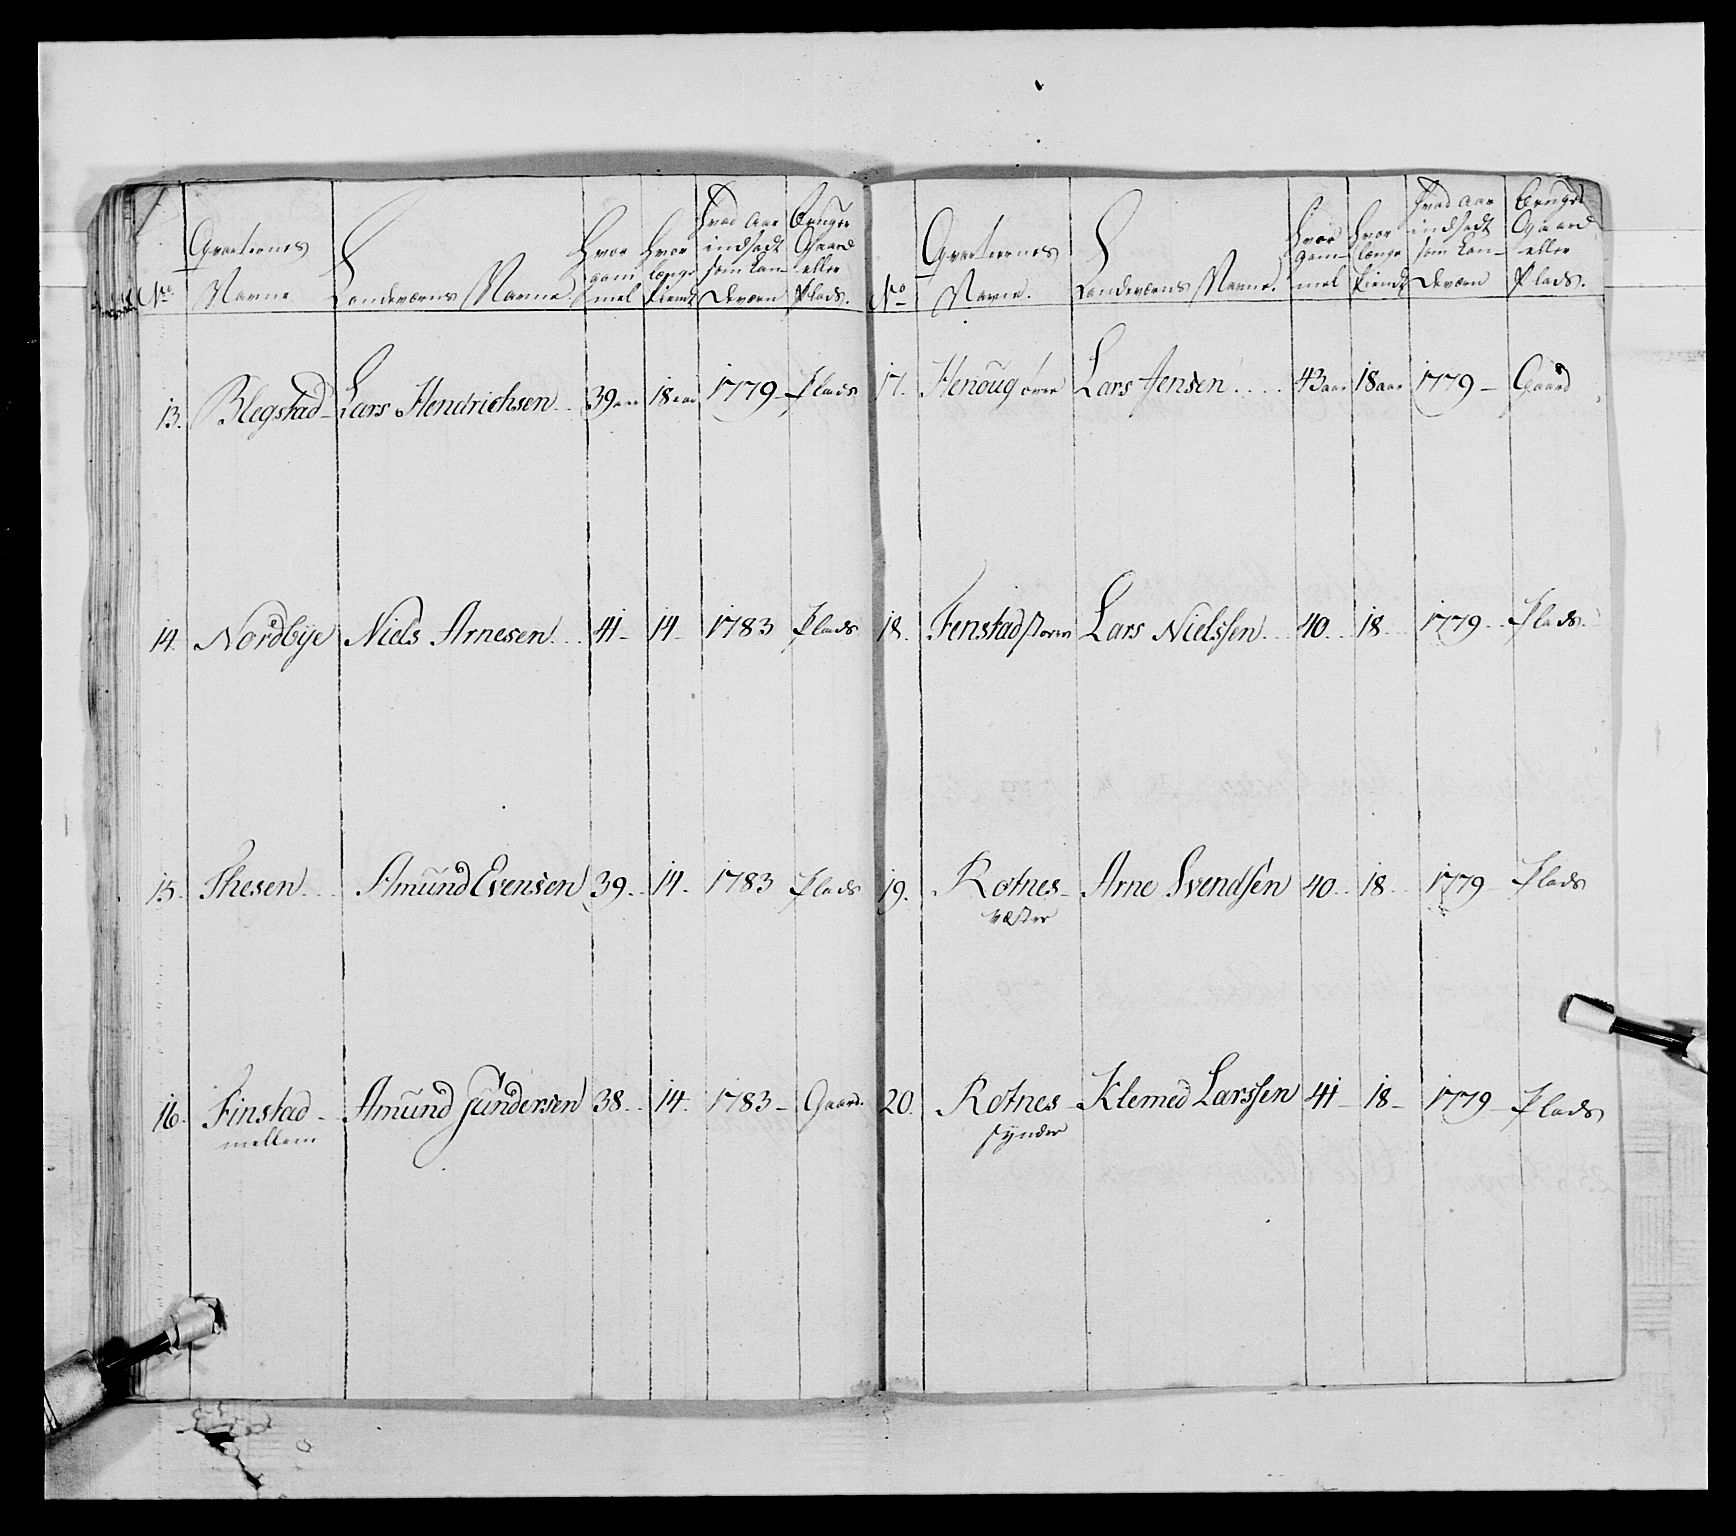 No
Qvarterernes
Navne
Landeværns Navne
Hvor
gam
mel
Hvor
længe
tient
hvad Aar
indsadt
som Lan-
deværn
Bruger
Gaard
eller
Plads.
13. Blegstad - Lars Hendrichsen 39 aar 18 aar 1779 - Plads
14. Nordbÿe Niels Arnesen 41 - 14 - 1783 Plads
15. Thesen Amund Evensen 39 - 14 - 1783 Plads
16. Finstad - Amund Gundersen 38 - 14 - 1783 - Gaard.
mellem
No
Qvarterernes
Navne.
Landeværns Navne.
Hvor
gam-
mel
Hvor
længe
tient
hvad Aar
indsadt
som Lan-
deværn
Bruger
Gaard
eller
Plads.
17. Henoug øvre Lars Jensen 43 aar 18 aar 1779 - Gaard
18. Fenstad store Lars Nielssen 40 18 1779 - Plads.
19. Rotnes - Arne Svendsen 40 18 1779 - Plads
Vester
20. Rotnes - Klemed Larssen 41 - 18 - 1779 - Plads
synder